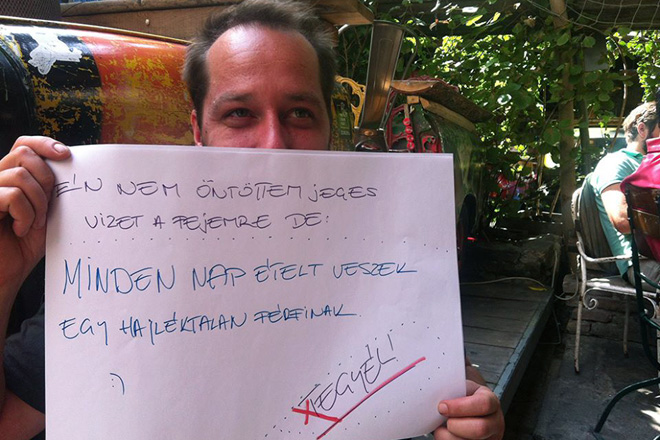 ÉN NEM ÖNTÖTTEM JEGES
VIZET A FEJEMRE DE:
MINDEN NAP ÉTELT VESZEK
EGY HAJLÉKTALAN FÉRFINAK.
:)
TEGYÉL!